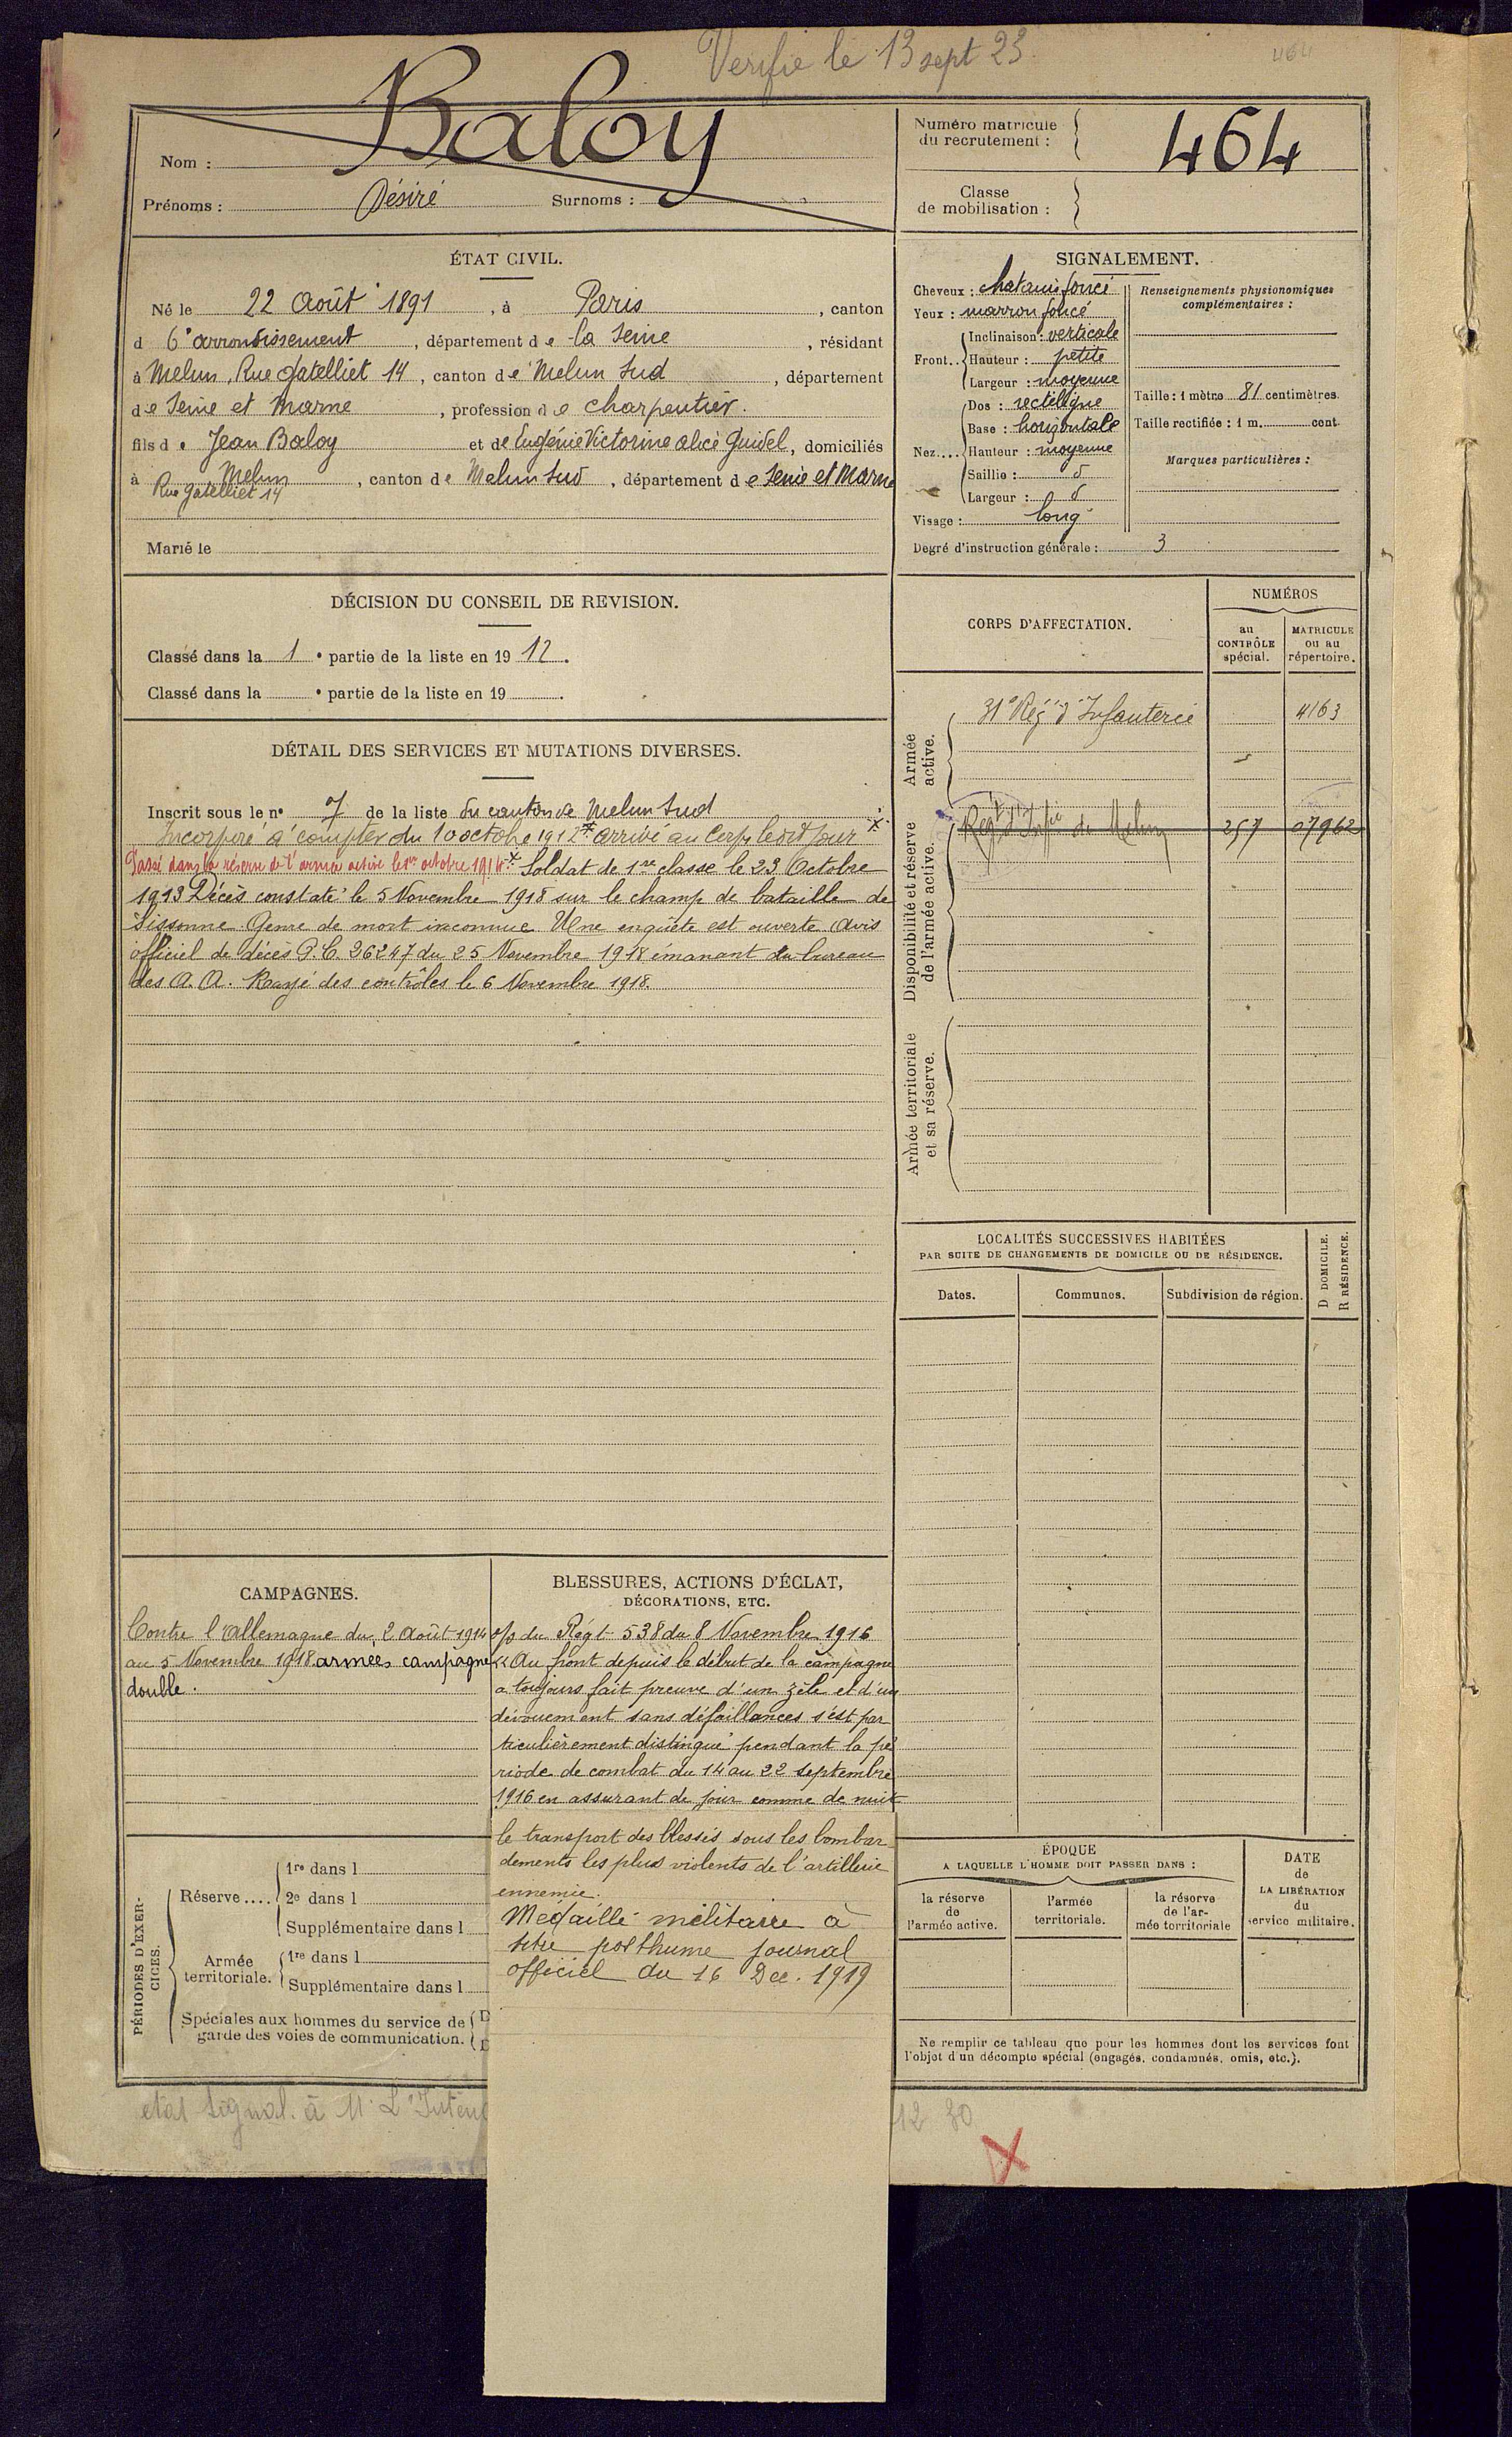 Verifié le 13 sept 23
464
Nom : Baloy
Prénoms : Désiré Surnoms :
Numéro matricule
du recrutement : 464
Classe
de mobilisation :
ÉTAT CIVIL.
Né le 22 Août 1891, à Paris, canton
d 6e arrondissement, département de la Seine, résidant
à Melun, Rue Gatelliet 14, canton de Melun Sud, département
de Seine et Marne, profession de charpentier.
fils de Jean Baloy et de Eugénie Victorine Alice Guidel, domiciliés
à Melun Rue Gatelliet 14, canton de Melun Sud, département de Seine et Marne
Marié le
SIGNALEMENT.
Cheveux : chatains foncé
Yeux : marron foncé
Front.. Inclinaison : verticale
Hauteur : petite
Largeur : moyenne
Nez.... Dos : rectiligne
Base : horizontale
Hauteur : moyenne
Saillie : d
Largeur : d
Visage : long
Renseignements physionomiques
complémentaires :
Taille : 1 mètre 81 centimètres.
Taille rectifiée : 1 m. cent.
Marques particulières :
Degré d'instruction générale : 3
DÉCISION DU CONSEIL DE REVISION.
Classé dans la 1e partie de la liste en 1912.
Classé dans la e partie de la liste en 19 .
DÉTAIL DES SERVICES ET MUTATIONS DIVERSES.
Inscrit sous le no 7 de la liste du canton de Melun Sud
Incorporé à compter du 10 octobre 1912 * arrivé au Corps ledit jour *
Passé dans la réserve de l'armée active le 1er octobre 1914 * Soldat de 1re classe le 23 Octobre
1913 Décès constaté le 5 Novembre 1918 sur le champ de bataille de
Sissonne Genre de mort inconnue Une enquête est ouverte Avis
officiel de décès P.C. 26247 du 25 Novembre 1918 émanant du bureau
des A. A. Rayé des contrôles le 6 Novembre 1918.
CORPS D'AFFECTATION.
NUMÉROS
au
CONTRÔLE
spécial.
MATRICULE
ou au
répertoire.
Armée
active.
31e Rég d'Infanterie 4163
Disponibilité et réserve
de l'armée active.
Régt d'Infie de Melun 257 07962
Armée territoriale
et sa réserve.
LOCALITÉS SUCCESSIVES HABITÉES
PAR SUITE DE CHANGEMENTS DE DOMICILE OU DE RÉSIDENCE.
Dates.
Communes.
Subdivision de région.
D DOMICILE.
R RÉSIDENCE.
CAMPAGNES.
Contre l'Allemagne du 2 Août 1914
au 5 Novembre 1918 armées campagne
double.
BLESSURES, ACTIONS D'ÉCLAT,
DÉCORATIONS, ETC.
o/o du Régt 538 du 8 Novembre 1916
« Au front depuis le début de la campagne
a toujours fait preuve d'un zèle et d'un
dévouement sans défaillances s'est par
ticulièrement distingué pendant la pé
riode de combat du 14 au 22 septembre
1916 en assurant de jour comme de nuit
le transport des blessés sous les bombar
dements les plus violents de l'artillerie
ennemie.
Médaille militaire à
titre posthume journal
officiel du 16 Dec. 1919
PÉRIODES D'EXER-
CICES.
Réserve....
1re dans l
2e dans l
Supplémentaire dans l
Armée
territoriale.
1re dans l
Supplémentaire dans l
Spéciales aux hommes du service de
garde des voies de communication.
ÉPOQUE
A LAQUELLE L'HOMME DOIT PASSER DANS :
la réserve
de
l'armée active.
l'armée
territoriale.
la réserve
de l'ar-
mée territoriale
DATE
de
LA LIBÉRATION
du
service militaire.
Ne remplir ce tableau que pour les hommes dont les services font
l'objet d'un décompte spécial (engagés, condamnés, omis, etc.).
etat signal. à M. L'Inten
12 30
X